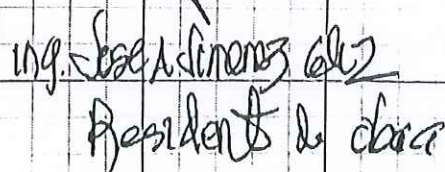 ing. Jose A Jimenez
Residente de obra